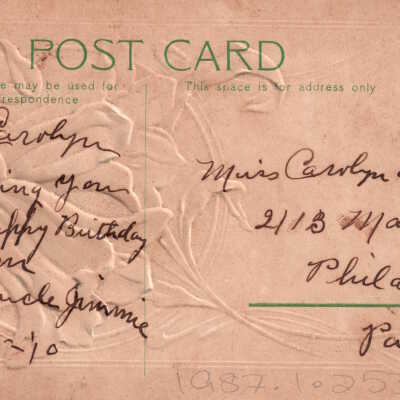 POST CARD
e may be used for
respondence
This space is for address only
Carolyn
ing you
appy Birthday
om
ncle Jimmie
-10
Miss Carolyn
2113 Ma
Phila
Pa
1987.1.25